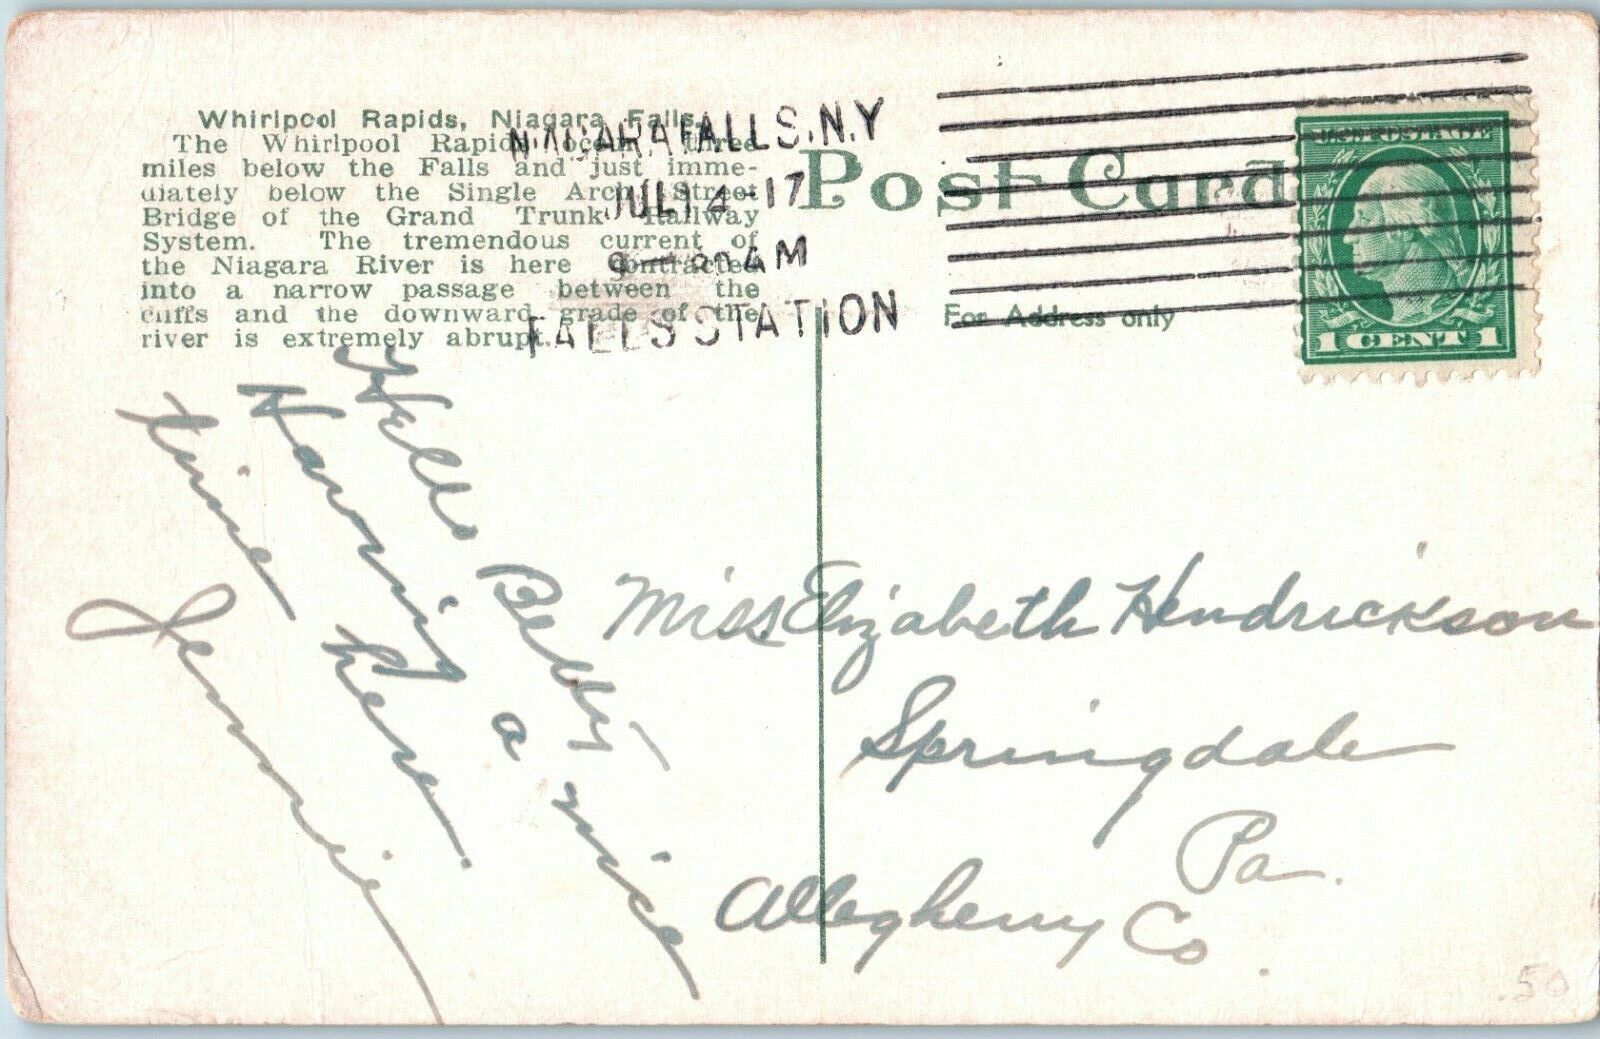 Whirlpool Rapids, Niagara Falls.
The Whirlpool Rapids occur, three
miles below the Falls and just imme-
diately below the Single Arch Street
Bridge of the Grand Trunk Railway
System. The tremendous current of
the Niagara River is here contracted
into a narrow passage between the
cliffs and the downward grade of the
river is extremely abrupt.
NIAGARA FALLS, N.Y
JUL 14 17
9 - 30 AM
FALLS STATION
Post Card
For Address only
U.S. POSTAGE
1 CENT 1
Hello Betty
Having a nice
time here.
Jennie
Miss Elizabeth Hendrickson
Springdale
Pa.
Allegheny Co.
.50